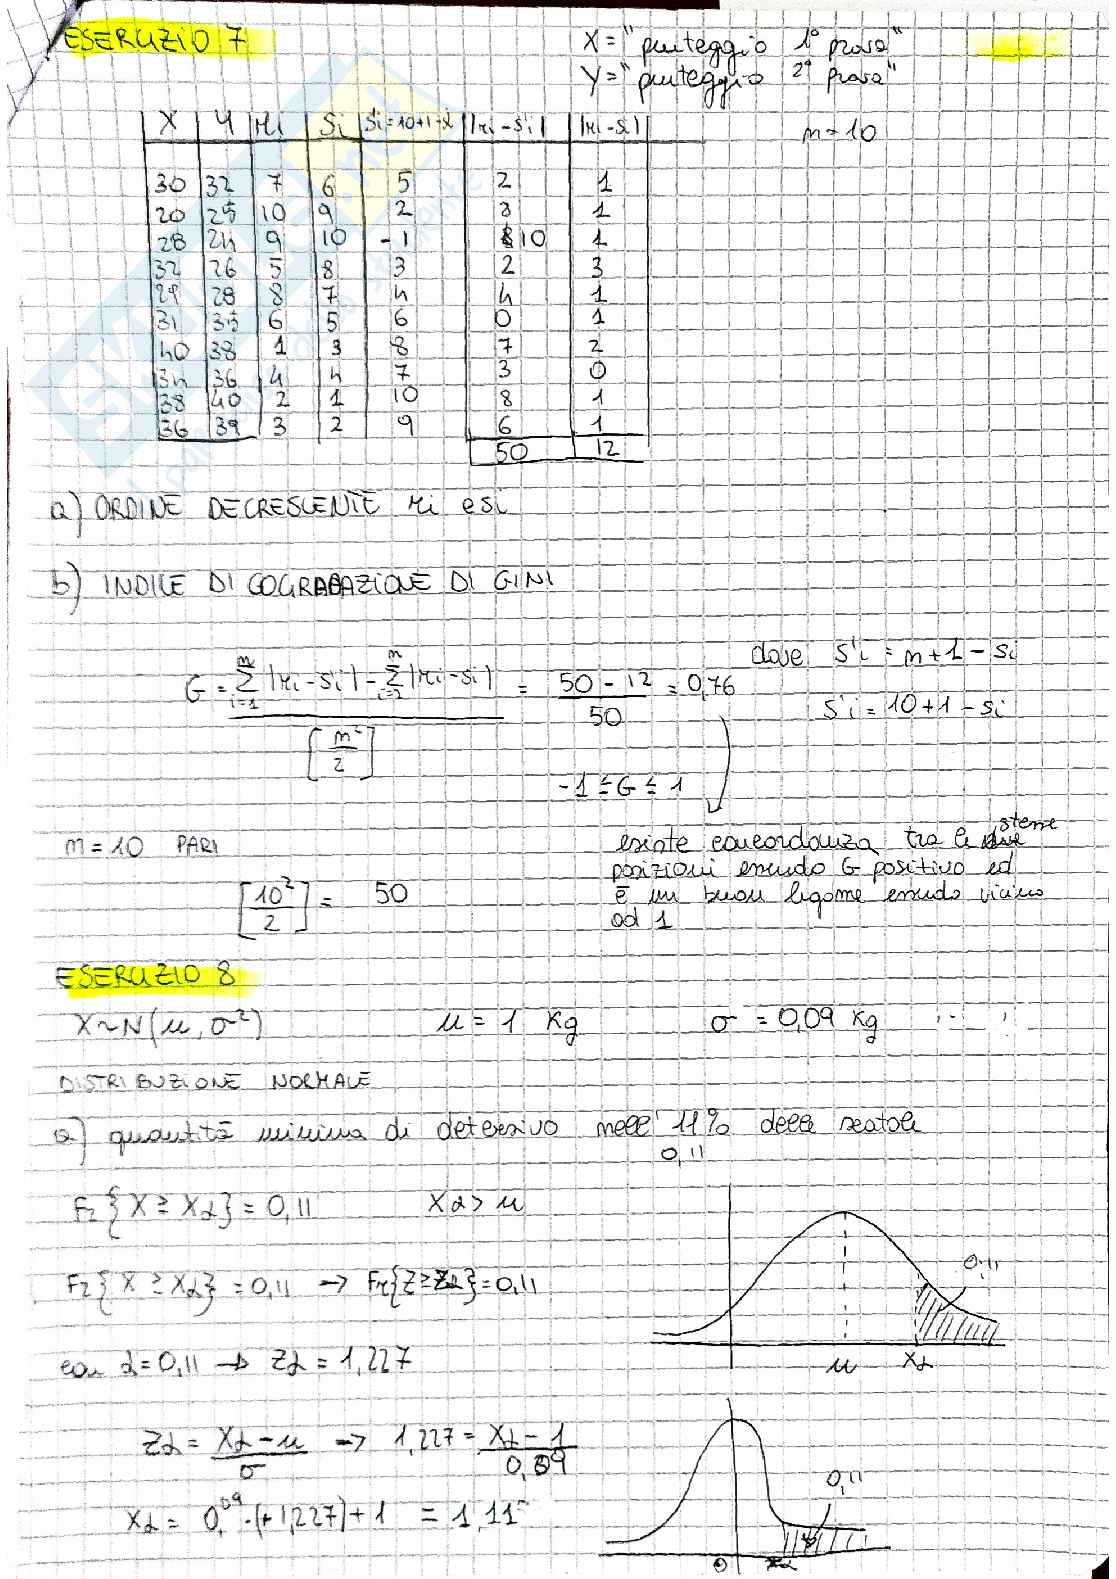 ESERCIZIO 7
X = "punteggio 1ª prova"
Y = "punteggio 2ª prova"
n = 10
X Y ri si s'i=10+1-si |ri-s'i| |ri-si|
30 32 7 6 5 2 1
20 25 10 9 2 8 1
28 24 9 10 -1 10 1
32 26 5 8 3 2 3
29 28 8 7 4 4 1
31 35 6 5 6 0 1
40 38 1 3 8 7 2
34 36 4 4 7 3 0
38 40 2 1 10 8 1
36 39 3 2 9 6 1
50 12
a) ORDINE DECRESCENTE ri e si
b) INDICE DI COGRADAZIONE DI GINI
dove s'i = n+1-si
G = Σ|ri-s'i| - Σ|ri-si| / [n²/2] = 50-12 / 50 = 0,76
s'i = 10+1-si
-1 ≤ G ≤ 1
n = 10 PARI
esiste concordanza tra le stesse
posizioni essendo G positivo ed
è un buon legame essendo vicino
ad 1
[10²/2] = 50
ESERCIZIO 8
X~N(μ, σ²) μ = 1 Kg σ = 0,09 Kg
DISTRIBUZIONE NORMALE
a) quantità minima di detersivo nell' 11% delle scatole
0,11
Fr{X ≥ Xα} = 0,11 Xα > μ
0,11
Fr{X ≥ Xα} = 0,11 → Fr{Z ≥ Zα} = 0,11
μ Xα
con α = 0,11 → Zα = 1,227
Zα = Xα - μ / σ → 1,227 = Xα - 1 / 0,09
0,11
Xα = 0,09 · (+1,227) + 1 = 1,11
0 zα